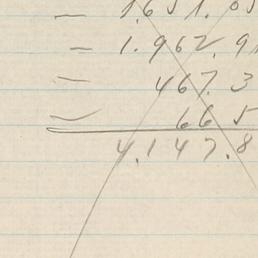 — 1.651.05
— 1.962.91
— 467.3
— 66 5
4.147.8